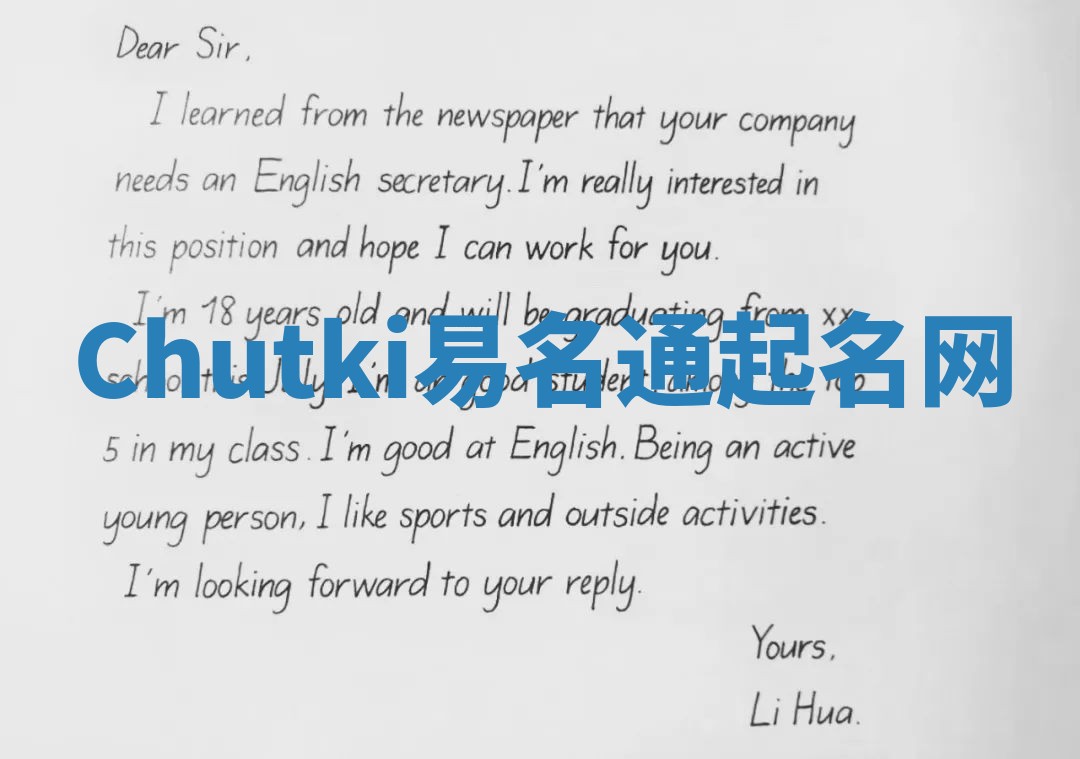 Dear Sir,
I learned from the newspaper that your company
needs an English secretary. I'm really interested in
this position and hope I can work for you.
I'm 18 years old and will be graduating from xx
Chutki易名通起名网
school this July. I'm a good student among the top
5 in my class. I'm good at English. Being an active
young person, I like sports and outside activities.
I'm looking forward to your reply.
Yours,
Li Hua.